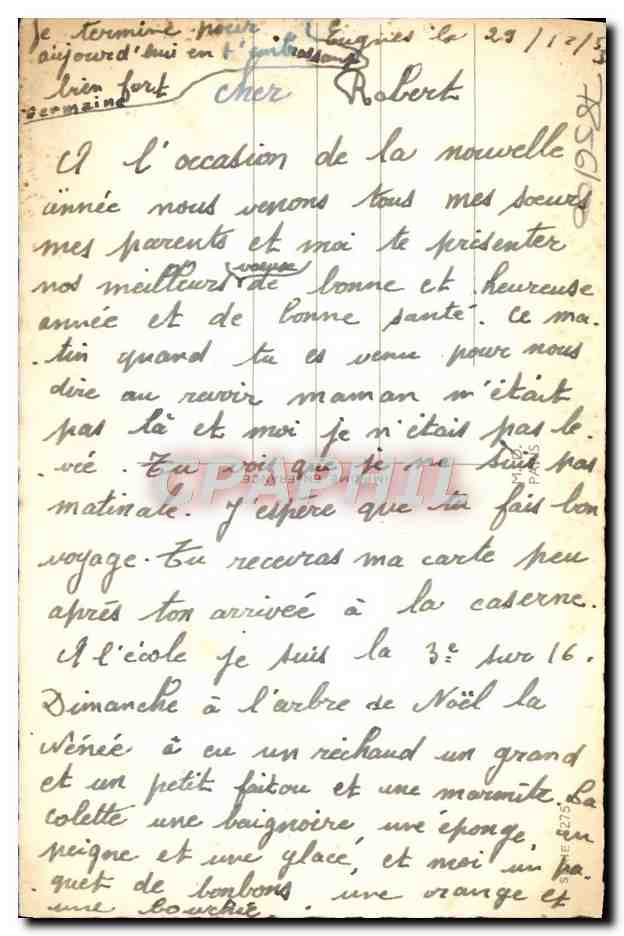 Je termine pour
aujourd'hui en t'embrassant
bien fort
Germaine
le 29/12/53
cher Robert
A l'occasion de la nouvelle
année nous venons tous mes sœurs
mes parents et moi te présenter
nos meilleurs voeux de bonne et heureuse
année et de bonne santé. Ce ma-
tin quand tu es venu pour nous
dire au revoir maman n'était
pas là et moi je n'étais pas le-
vée. Tu vois que je ne suis pas
matinale. J'espère que tu fais bon
voyage. Tu recevras ma carte peu
après ton arrivée à la caserne.
A l'école je suis la 3e sur 16.
Dimanche à l'arbre de Noël la
Nénée à eu un réchaud un grand
et un petit faitou et une marmite. La
colette une baignoire, une éponge, un
peigne et une glace, et moi un pa-
quet de bonbons, une orange et
une bouchée.
CPAPHIL
IMPRIMÉ EN FRANCE
M.D.
PARIS